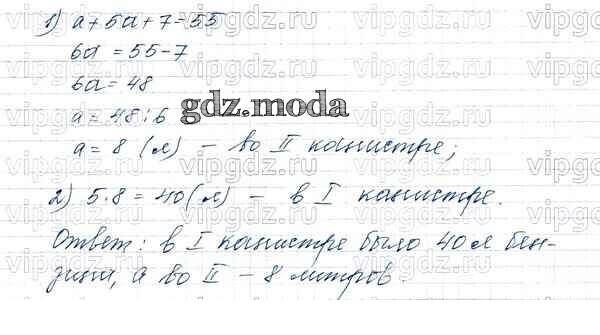 1) a + 5a + 7 = 55
6a = 55 - 7
6a = 48
a = 48 : 6
gdz.moda
a = 8 (л) - во II канистре;
2) 5·8 = 40 (л) - в I канистре.
Ответ: в I канистре было 40 л бен-
зина, а во II - 8 литров.
vipgdz.ru